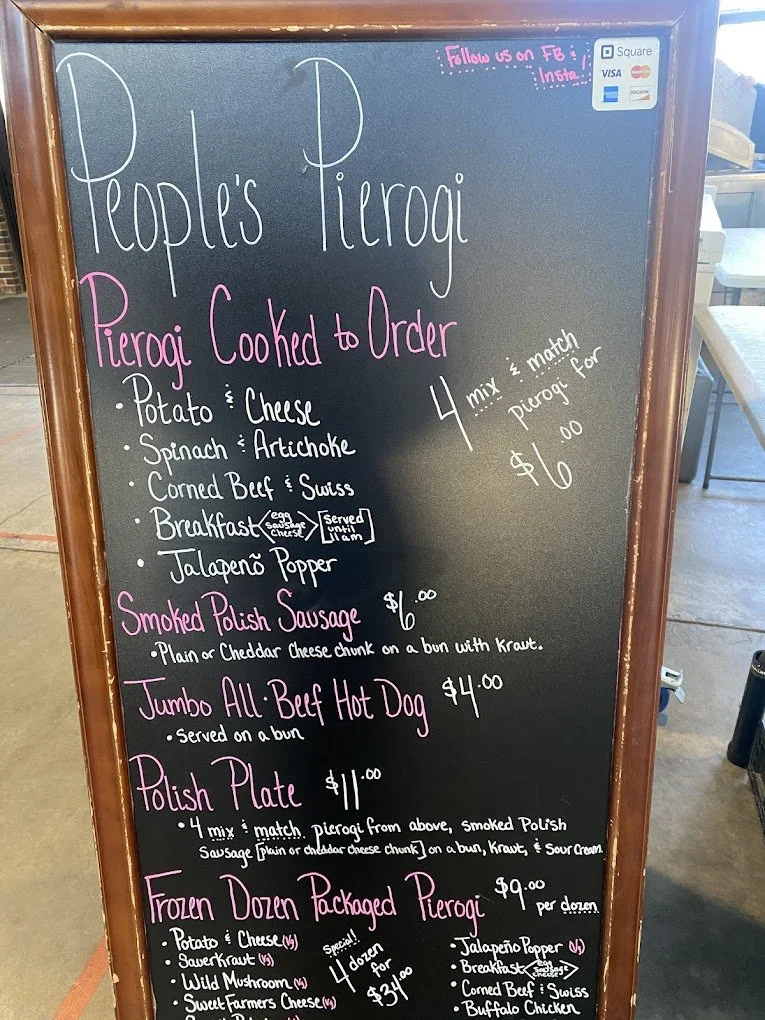 Follow us on FB &
Insta!
Square
VISA
MasterCard
DISCOVER
People's Pierogi
Pierogi Cooked to Order
• Potato & Cheese
• Spinach & Artichoke
• Corned Beef & Swiss
• Breakfast <egg sausage cheese> [served until 11am]
• Jalapenõ Popper
4 mix & match
pierogi for
$6.00
Smoked Polish Sausage $6.00
• Plain or Cheddar Cheese chunk on a bun with kraut.
Jumbo All-Beef Hot Dog $4.00
• Served on a bun
Polish Plate $11.00
• 4 mix & match pierogi from above, smoked Polish
Sausage [plain or cheddar cheese chunk] on a bun, Kraut, & Sour Cream
Frozen Dozen Packaged Pierogi $9.00
per dozen
• Potato & Cheese (V)
• Sauerkraut (V)
• Wild Mushroom (V)
• Sweet Farmers Cheese (V)
Special!
4 dozen
for
$34.00
• Jalapeño Popper (V)
• Breakfast <egg sausage cheese>
• Corned Beef & Swiss
• Buffalo Chicken